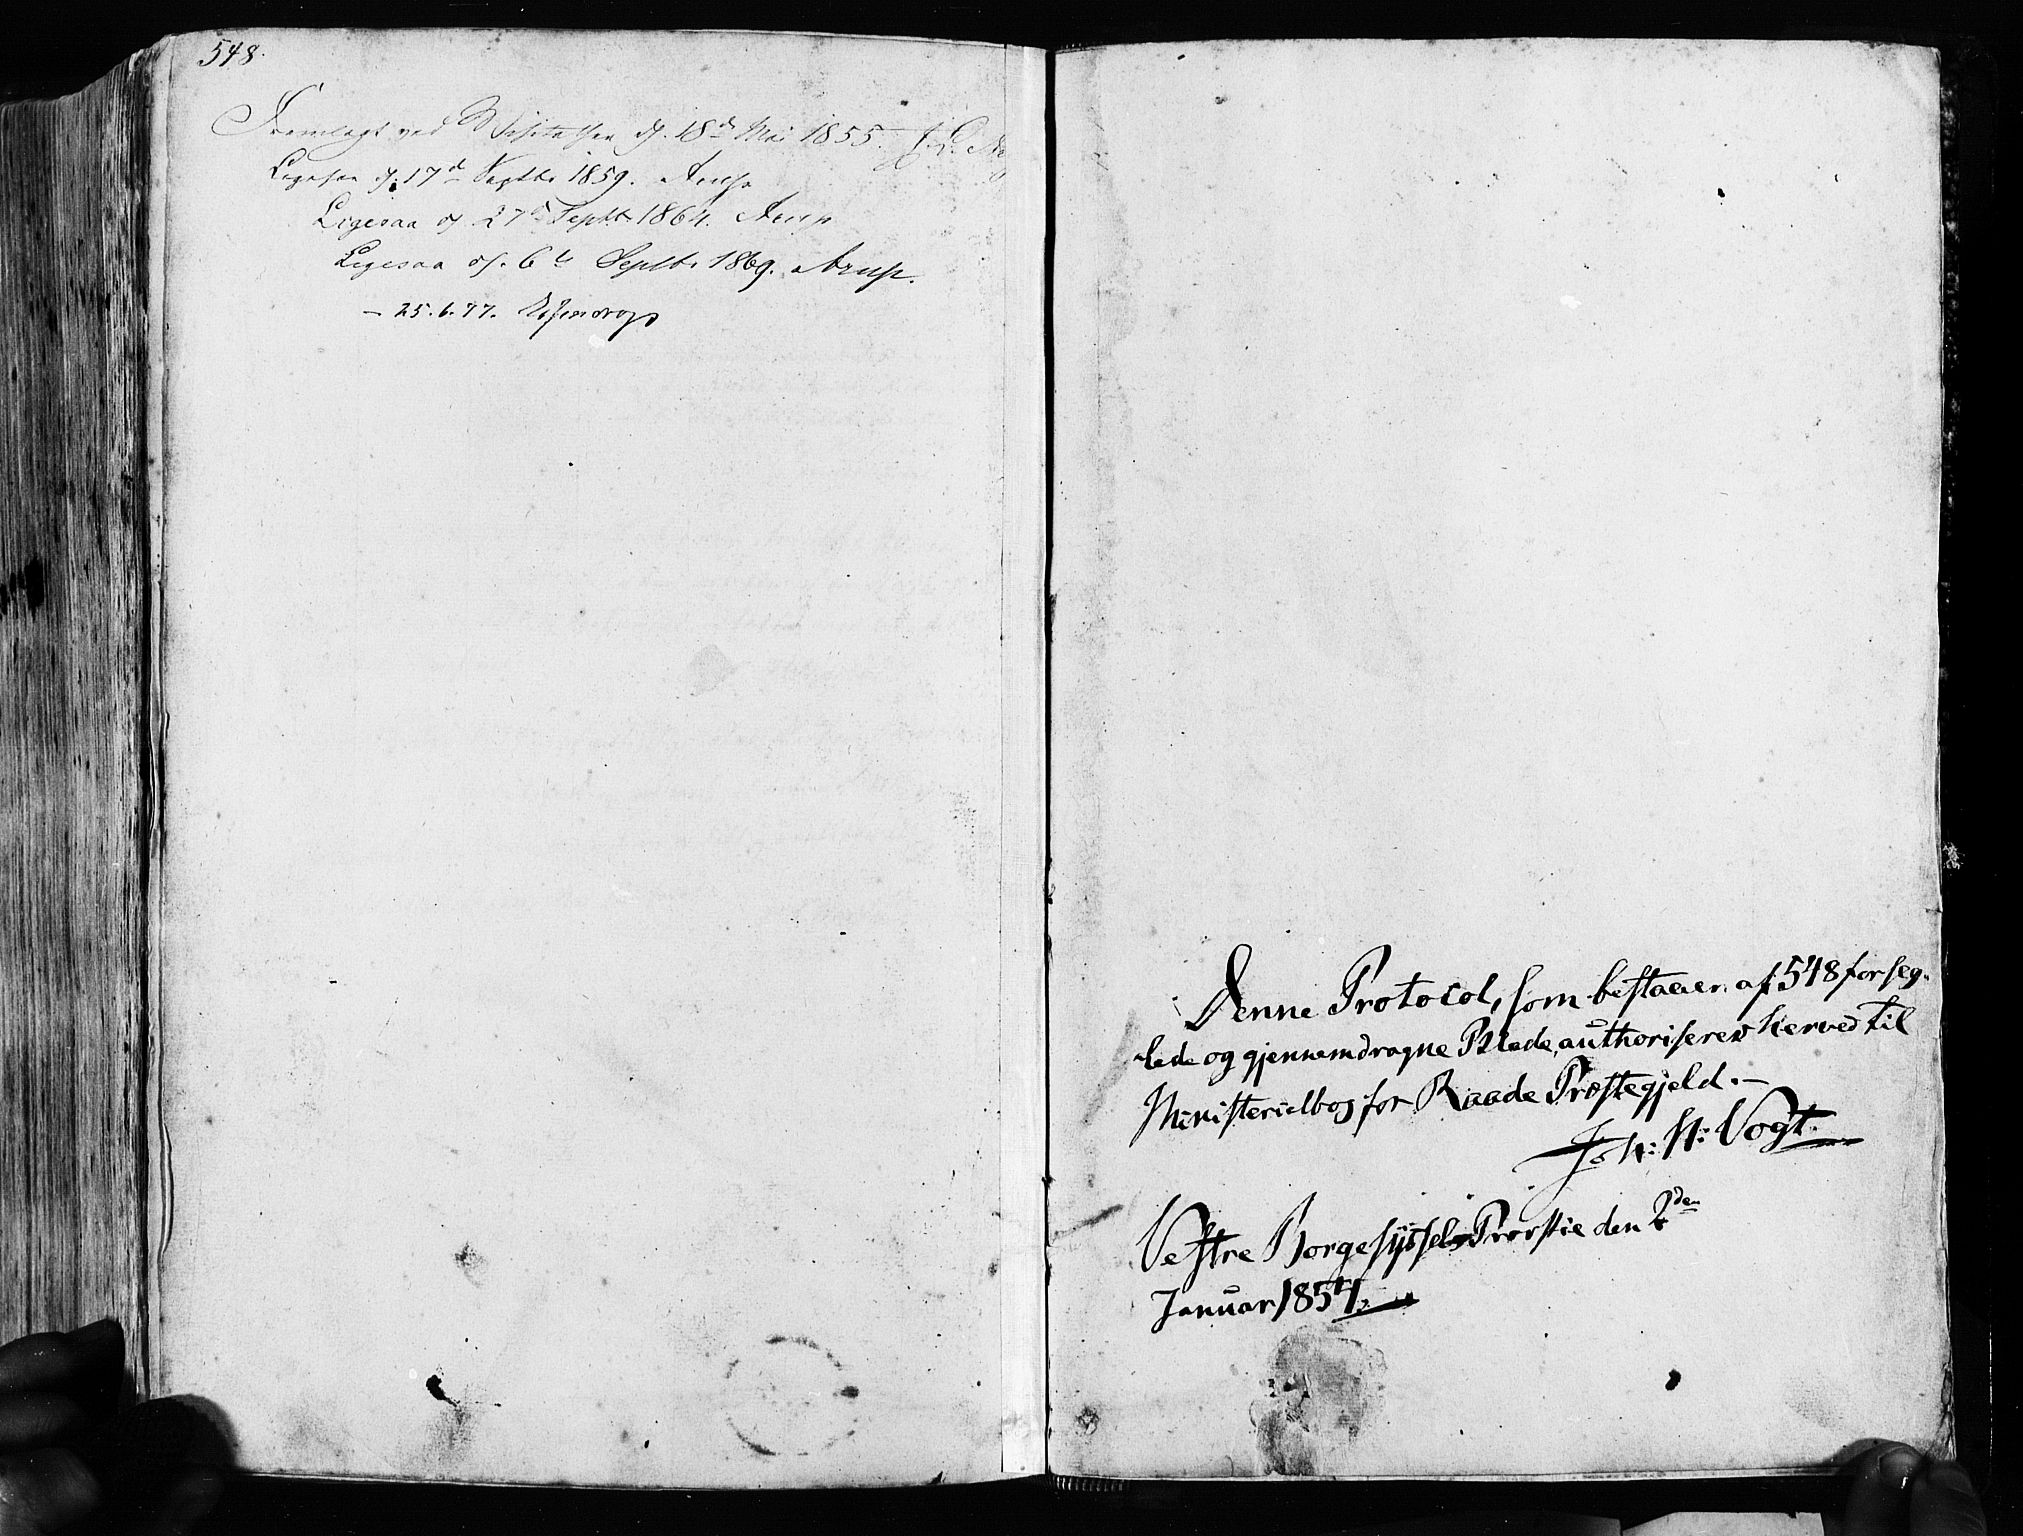 548.
Fremlagt ved Visitatsen d. 18d Mai 1855.
Ligesaa d. 17d Septbr 1859. Arup
Ligesaa d. 27d Septbr 1864. Arup
Ligesaa d. 6te Septbr 1869. Arup.
– 25.6.77. Essendrop
Denne Protocol, som bestaaer af 548 forseg-
lede og gjennemdragne Blade, authoriseres herved til
Ministerialbog for Raade Præstegjeld. –
Joh: St: Vogt.
Vestre Borgesyssels Provstie den 2den
Januar 1854.